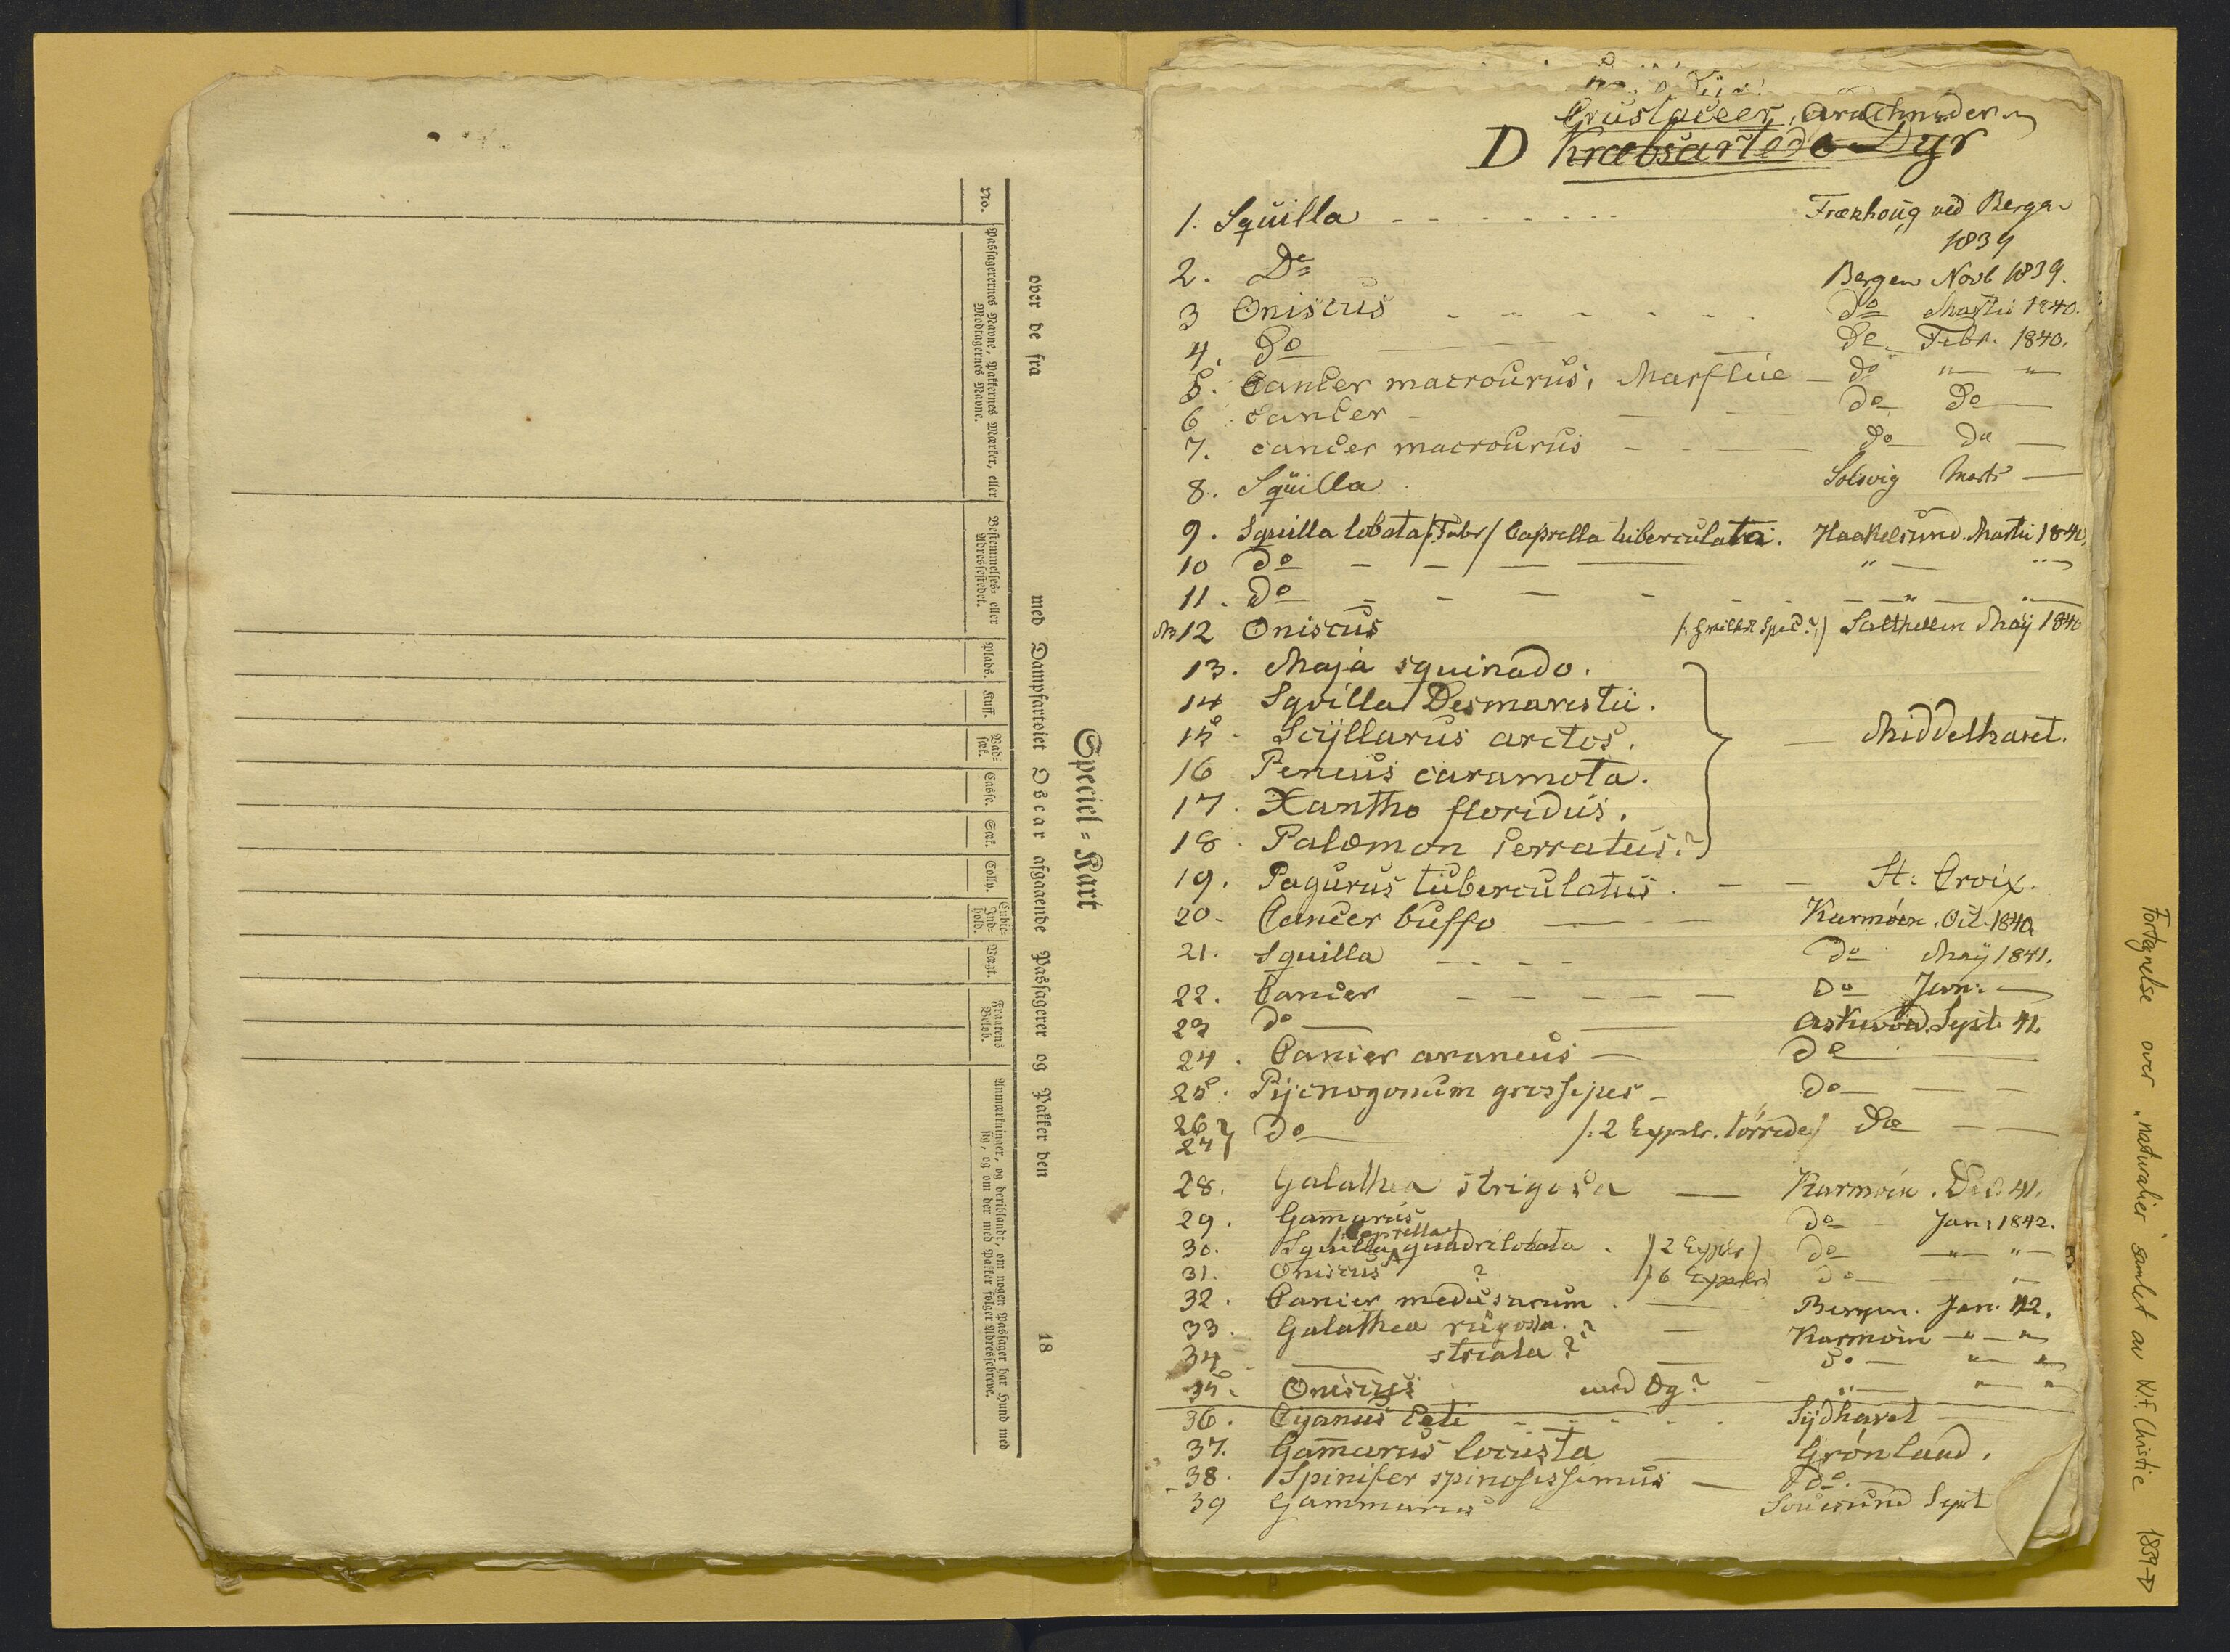 Speciel-Kart
over de fra med Dampfartoiet Oscar afgaaende Passagerer og Pakker den 18
No.
Passagerernes Navne, Pakkernes Mærker, eller Modtagernes Navne.
Bestemmelses- eller Adressestedet.
Plads.
Kuff.
Vad-sæk.
Casse.
Sæk.
Colly.
Cubic-Ind-hold.
Vægt.
Fragtens Beløb.
Anmærkninger, og deriblandt, om nogen Passager har Hund med sig, og om der med Pakker følger Adressebreve.
Crustaceer, Arachnider
D Krebsartede Dyr
1. Squilla - - - - - - - ved Bergen
1839
2. Do Bergen Novb 1839.
3 Oniscus - - - - - - Do Martii 1840.
4. Do Do Febr. 1840.
5. Cancer macrourus, Marflue - Do " "
6 Cancer - - - Do Do
7. Cancer macrourus - - - Do Do
8. Squilla . Solsvig Marts
9. Squilla lobata /:Fabr/ Caprella tuberculata. Haakelsund. Martii 1840.
10 Do - - - " "
11. Do - - - - - "
12 Oniscus Salthellen Maij 1840
13. Maja squinado.
14 Sqvilla Desmarestii.
15. Scÿllarus arctos. Middelhavet.
16 Peneus caramota.
17. Xantho floridus.
18. Palæmon serratus?
19. Pagurus tuberculatus. - - St: Croix.
20. Cancer buffo - - Karmöen. Oct. 1840.
21. Squilla - - - - Do Maÿ 1841.
22. Cancer - - - - - Do Jun:
23 do Sept. 41.
24. Cancer araneus - Do
25. Pijcnogonum grossipes - Do
26 27 } Do /:2 Explr. törrede/ Do
28. Galathea strigosa - Karmöen. Dec. 41.
29. Gamarus Do Jan: 1842.
Caprella
30. Squilla quadrilobata. /2 Explr/ Do " "
31. Oniscus ? /6 Explr/ Do
32. Cancer medusarum. - Bergen. Jan. 42.
33. Galathea rugosa. ? - Karmöen " "
34 striata? - do " "
35. Oniscus med Æg? - " " "
36. Cijanus Ceti - - - - Sÿdhavet
37. Gamarus locusta - Grönland.
38. Spinifer spinosissimus - do.
39 Gammarus Sept
Fortegnelse over "naturalier" samlet av W.F. Christie 1839→